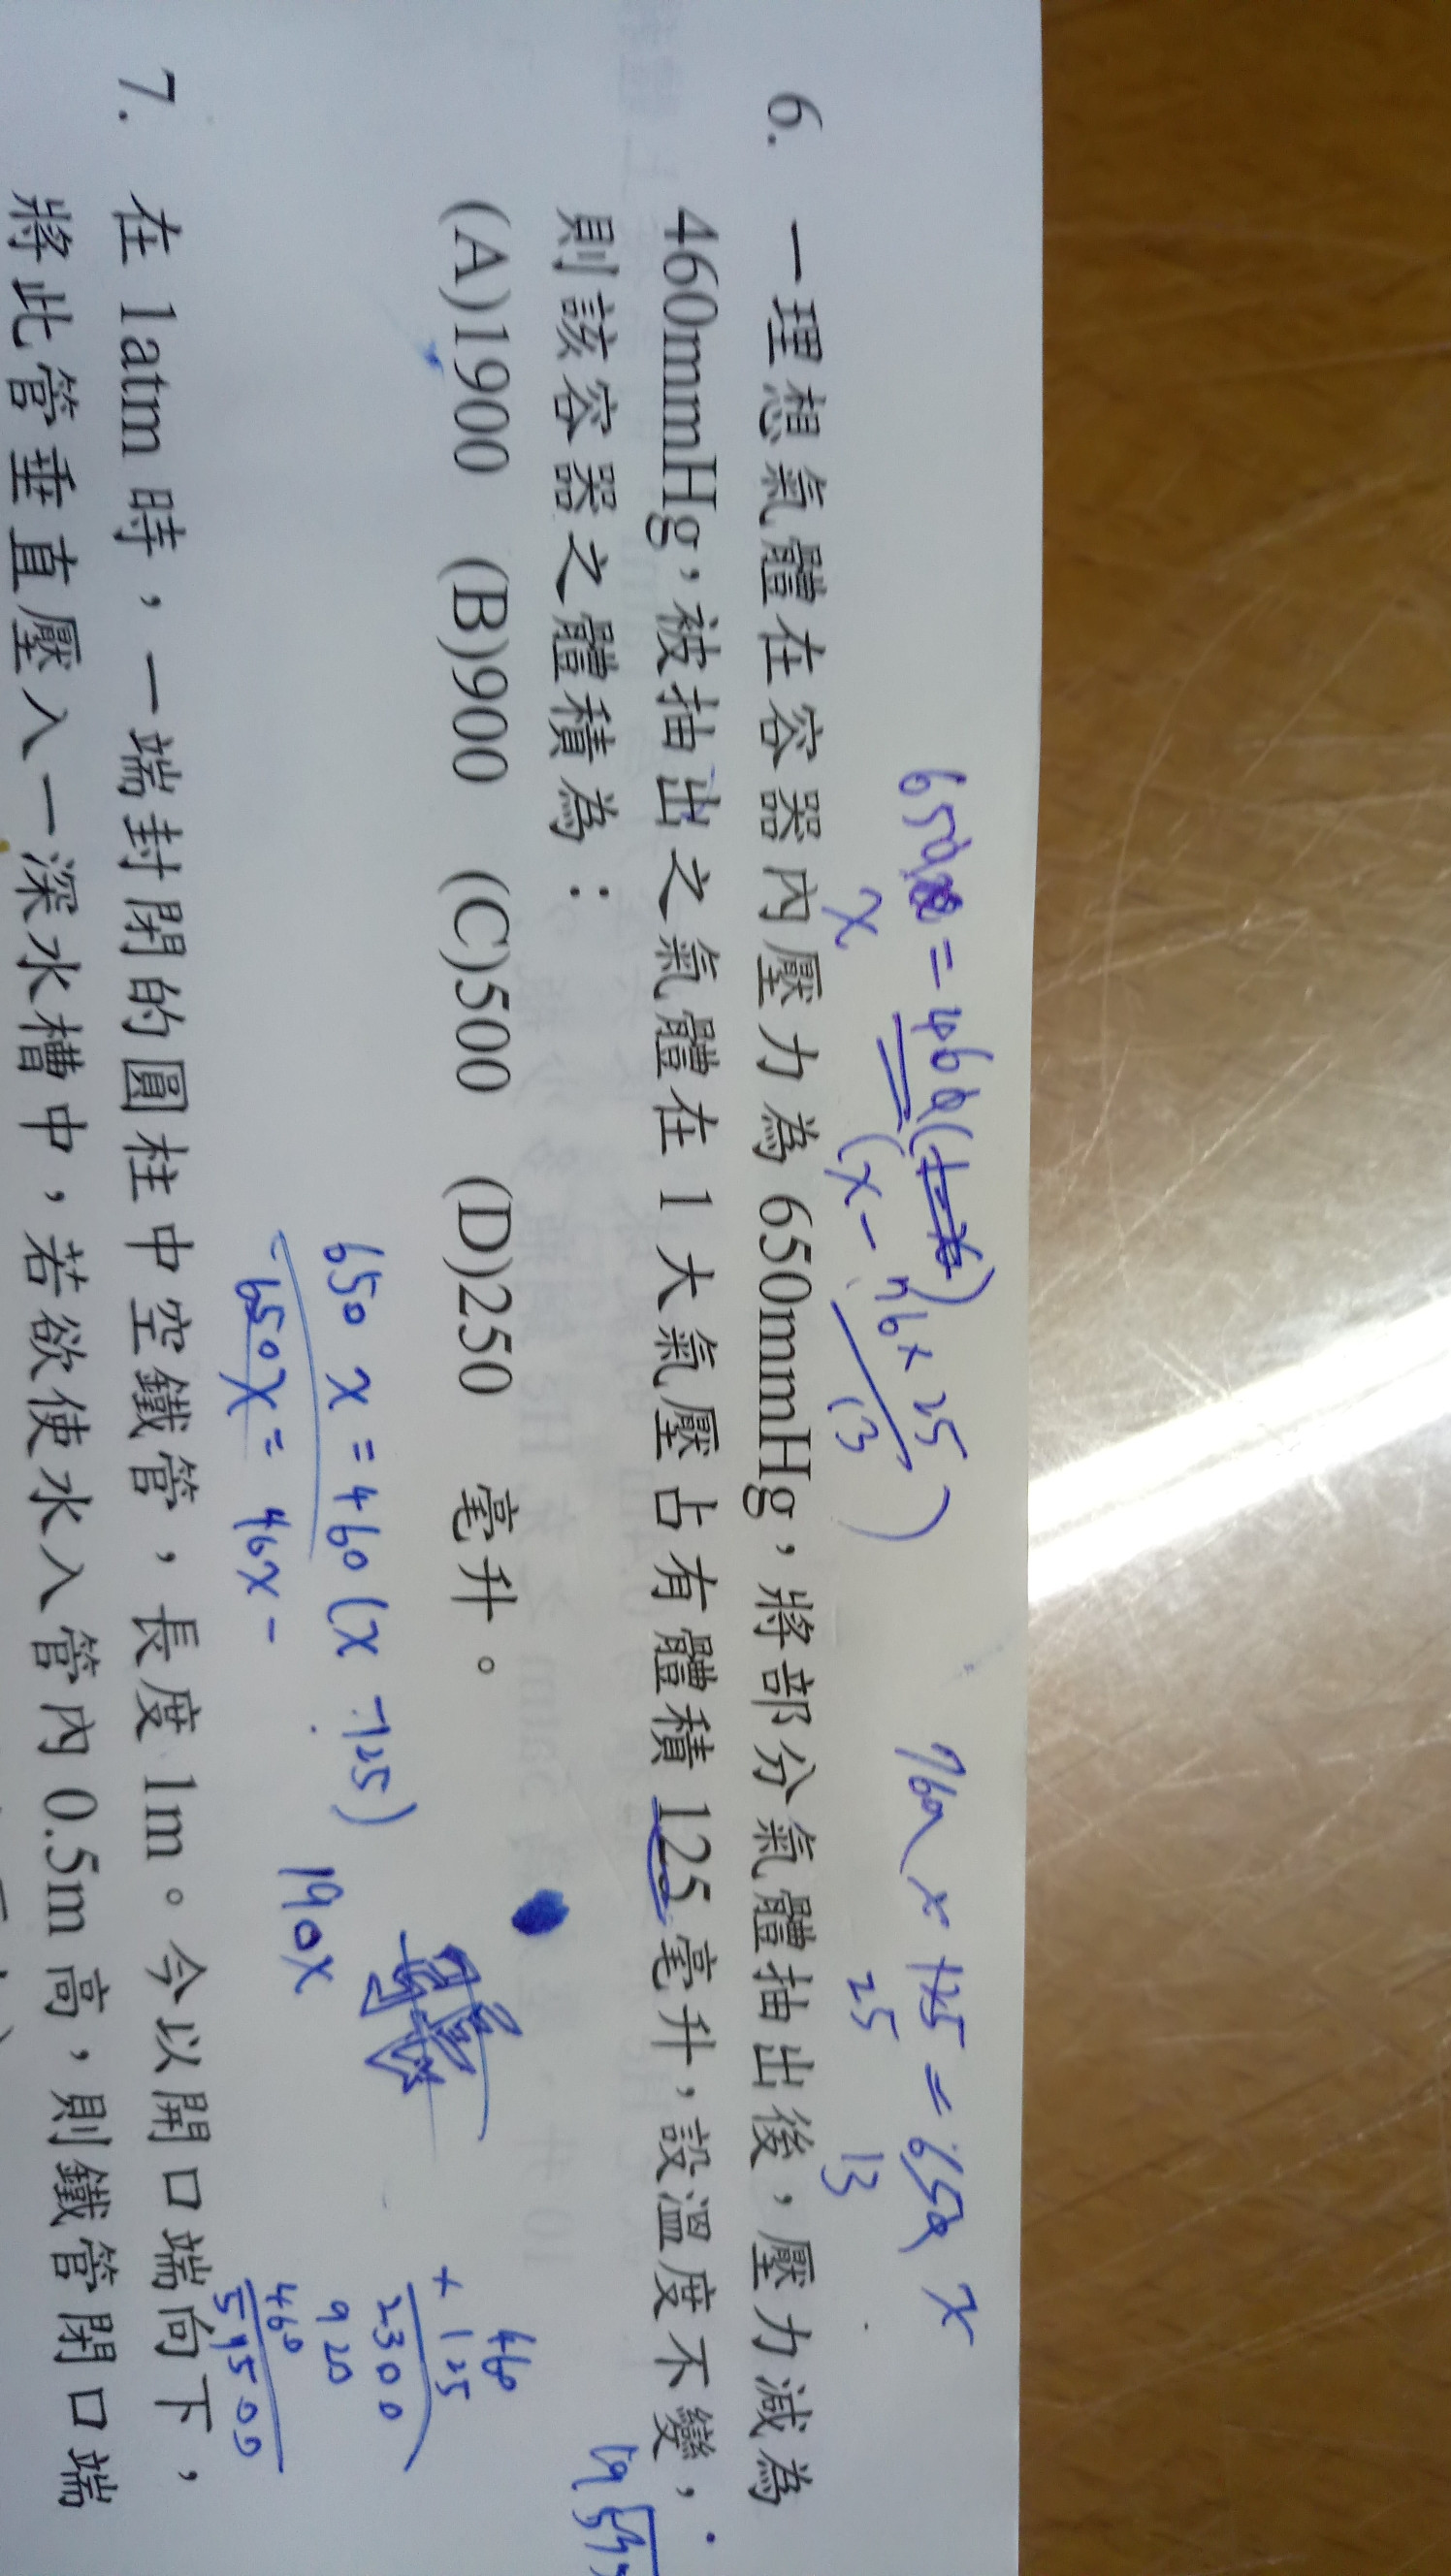 650 = 460(
x (x - 76×25/13)
760 × 125 = 650 x
25 13
6. 一理想氣體在容器內壓力為 650mmHg，將部分氣體抽出後，壓力減為
460mmHg，被抽出之氣體在 1 大氣壓占有體積 125 毫升，設溫度不變，
則該容器之體積為：
(A)1900 (B)900 (C)500 (D)250 毫升。
650 x = 460 (x - 125)
- 650x = 46x -
190x
460
× 125
2300
920
460
57500
19
7. 在 1atm 時，一端封閉的圓柱中空鐵管，長度 1m。今以開口端向下，
將此管垂直壓入一深水槽中，若欲使水入管內 0.5m 高，則鐵管閉口端